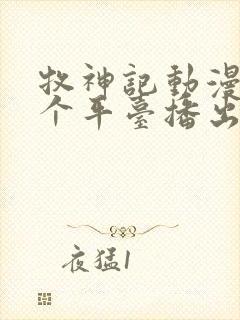 牧神記動漫
个平臺播出
夜猛1